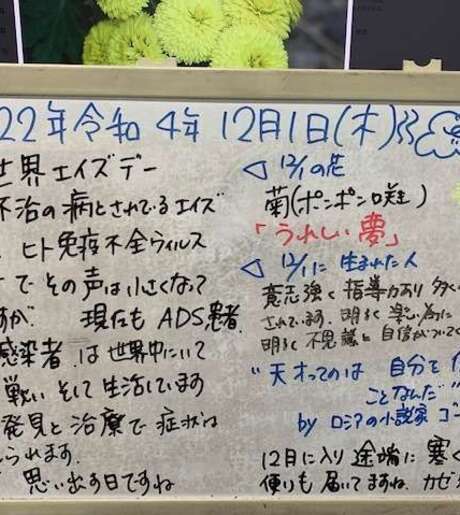 22年令和4年12月1日(木)
世界エイズデー
不治の病とされているエイズ
ヒト免疫不全ウィルス
でその声は小さくなって
すが. 現在もADS患者.
感染者は世界中にいて
戦いそして生活しています
発見と治療で症状は
られます.
思い出す日ですね
◁ 12/1の花
菊(ポンポン咲)
「うれしい夢」
◁ 12/1に生まれた人
意志強く指導力あり多く
されています. 明るく楽しい為に
明るく不思議と自信がついてく
"天才ってのは 自分を
ことなんだ"
by ロシアの小説家 ゴー
12月に入り途端に寒く
便りも届いてますね. カゼ